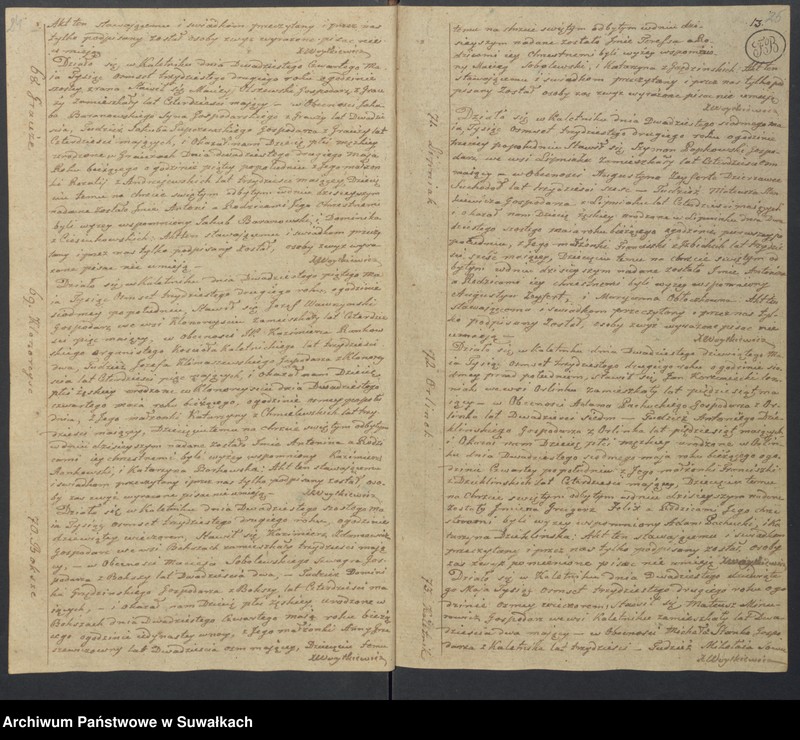 Akt ten stawaiącemu i świadkom przeczytany i przez nas
tylko podpisany został osoby zwyż wyrażone pisać nie
umieią X Woytkiewicz
68. Grauże
Działo się w Kaletniku dnia Dwudziestego Czwartego Ma-
ia Tysiąc Ośmset trzydziestego drugiego roku o godzinie
szóstey zrana, Stawił się Maciey Olszewski Gospodarz z Grau-
ży zamieszkały lat Czterdzieści maiący — w Obecności Jaku-
ba Baranowskiego Syna Gospodarskiego z Grauży lat Dwadzie-
ścia, Tudzież Jakuba Gospodarza z Grauży lat
Czterdzieści maiących, i Okazał nam Dziecię płci męzkiey
urodzone w Graużach Dnia dwudziestego drugiego maia
Roku bieżącego o godzinie piątey po południu z Jego małżon-
ki Rozalij z Andrzejewskich lat trzydzieści maiącey Dziecię-
ciu temu na chrzcie świętym odbytym w dniu dzisieyszym
nadane zostało Imie Antoni a Rodzicami Jego chrzestnemi
byli wyżey wspomniony Jakub Baranowski, i Dominika
z Ciszenkowskich: Akt ten stawaiącemu i świadkom przeczy-
tany i przez nas tylko podpisany został, osoby zwyż wyra-
żone pisać nie umieią — X Woytkiewicz
69. Klonorejść
Działo się w Kaletniku dnia Dwudziestego piątego Ma-
ia Tysiąc Ośmset trzydziestego drugiego roku, o godzinie
siódmey po południu, Stawił się Jozef Wawrzynski
Gospodarz we wsi Klonoreyściu zamieszkały lat Czterdzie-
ści pięć maiący, w Obecności JP. Kazimierza Rankow-
skiego Organistego Kościoła Kaletnickiego lat trzydzieści
dwa, Tudzież Jozefa Gospodarza z Klonorey-
ścia lat Czterdzieści pięć maiących, i okazał nam Dziecię
płci żęskiey urodzone w Klonoreyściu dnia Dwudziestego
czwartego maia roku bieżącego, o godzinie osmey przed po-
dnia, z Jego małżonki Katarzyny z Chmielewskich lat trzy-
dzieści maiącey, Dziecięciu temu na chrzcie świętym odbytym
w dniu dzisieyszym nadane zostało Imie Antonina a Rodzi-
cami iey chrzestnemi byli wyżey wspomniony Kazimierz
Rankowski, i Katarzyna Borkowska: Akt ten stawaiącemu
i świadkom przeczytany i przez nas tylko podpisany został oso-
by zaś zwyż wyrażone pisać nie umieią — X Woytkiewicz
70. Boksze
Działo się w Kaletniku dnia Dwudziestego szóstego ma-
ia Tysiąc Ośmset trzydziestego drugiego roku, o godzinie
dziewiątey wieczorem, Stawił się Kazimierz
Gospodarz we wsi Bokszach zamieszkały trzydzieści maią-
cy, — w Obecności Macieja Sobolewskiego Szwagra Gos-
podarza z Bokszy lat Dwadzieścia dwa, — Tudzież Domini-
ka Grudzinskiego Gospodarza z Bokszy lat Czterdzieści ma-
iących, — i okazał nam Dziecię płci żęskiey urodzone w
Bokszach dnia Dwudziestego Czwartego maia roku bieżą-
cego o godzinie iedynastey w nocy, z Jego małżonki Anny
lat Dwadzieścia osm maiącey, Dziecięciu temu
X Woytkiewicz
13.
temu na chrzcie świętym odbytym w dniu dzi-
sieyszym nadane zostało Imie Jozefa a Ro-
dzicami iey Chrzestnemi byli wyżey wspomnio-
ny Maciey Sobolewski, i Katarzyna z Grudzinskich. Akt ten
stawaiącemu i świadkom przeczytany i przez nas tylko pod-
pisany został osoby zaś zwyż wyrażone pisać nie umieią
X Woytkiewicz
71. Lipniak
Działo się w Kaletniku dnia Dwudziestego siódmego ma-
ia Tysiąc Ośmset trzydziestego drugiego roku o godzinie
trzeciey po południu Stawił się Szymon Popkowski Gospo-
darz we wsi Lipniaku Zamieszkały lat Czterdzieści
maiący — w Obecności Augustyna Zeyferta Dzierżawce
lat trzydzieści sześć — Tudzież
Gospodarza z Lipniaku lat Czterdzieści maiących
i okazał nam Dziecię żęskiey urodzone w Lipniaku dnia Dwu-
dziestego szóstego maia roku bieżącego o godzinie pierwszey po
południu, z Jego małżonki Franciszki z lat trzydzie-
ści sześć maiącey, Dziecięciu temu na chrzcie świętym od-
bytym w dniu dzisieyszym nadane zostało Imie Antonina
a Rodzicami iey chrzestnemi byli wyżey wspomniony
Augustyn Zeyfert, i Maryanna Akt ten
stawaiącemu i świadkom przeczytany i przez nas tyl-
ko podpisany został, osoby zwyż wyrażone pisać nie
umieią X Woytkiewicz
72. Orlinek
Działo się w Kaletniku dnia Dwudziestego dziewiątego Ma-
ia Tysiąc Ośmset trzydziestego drugiego roku o godzinie sió-
dmey przed południem, stawił się Jan
we wsi Orlinku zamieszkały lat pięćdziesiąt ma-
iący — w Obecności Adama Puchalskiego Gospodarza z Or-
linka lat Dwadzieścia siedm — Tudzież Antoniego Dzie-
klinskiego Gospodarza z Orlinka lat pięćdziesiąt maiących
i Okazał nam Dziecię płci męzkiey urodzone w Orlin-
ku dnia Dwudziestego siódmego maia roku bieżącego o go-
dzinie Czwartey po południu z Jego małżonki Franciszki
z Dzieklinskich lat Czterdzieści maiącey, Dziecięciu temu
na chrzcie świętym odbytym w dniu dzisieyszym nadane
zostały Imiona Grzegorz Felix a Rodzicami Jego chrze-
stnemi byli wyżey wspomniony Adam Puchalski, i Ka-
tarzyna Dzieklinska: Akt ten stawaiącemu i świadkom
przeczytany i przez nas tylko podpisany został, osoby
zaś zwyż pomienione pisać nie umieią X Woytkiewicz
73. Kaletnik
Działo się w Kaletniku dnia Dwudziestego dziewiąte-
go Maja Tysiąc Ośmset trzydziestego drugiego roku o go-
dzinie osmey wieczorem, Stawił się Mateusz
Gospodarz we wsi Kaletniku zamieszkały lat Dwa-
dzieścia dwa maiący — w Obecności Michała Stanko Gospo-
darza z Kaletnika lat trzydzieści — Tudzież Mikołaja
X Woytkiewicz
Archiwum Państwowe w Suwałkach